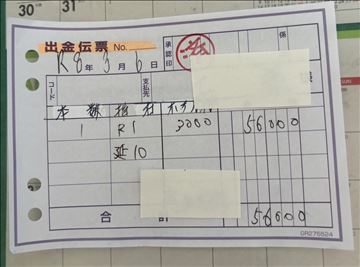 30 31
出金伝票 No.
承認印 係
R8年3月6日
コード 支払先
本数 指名
1 R1 3000 56000
延10
合計 56000
GR276524